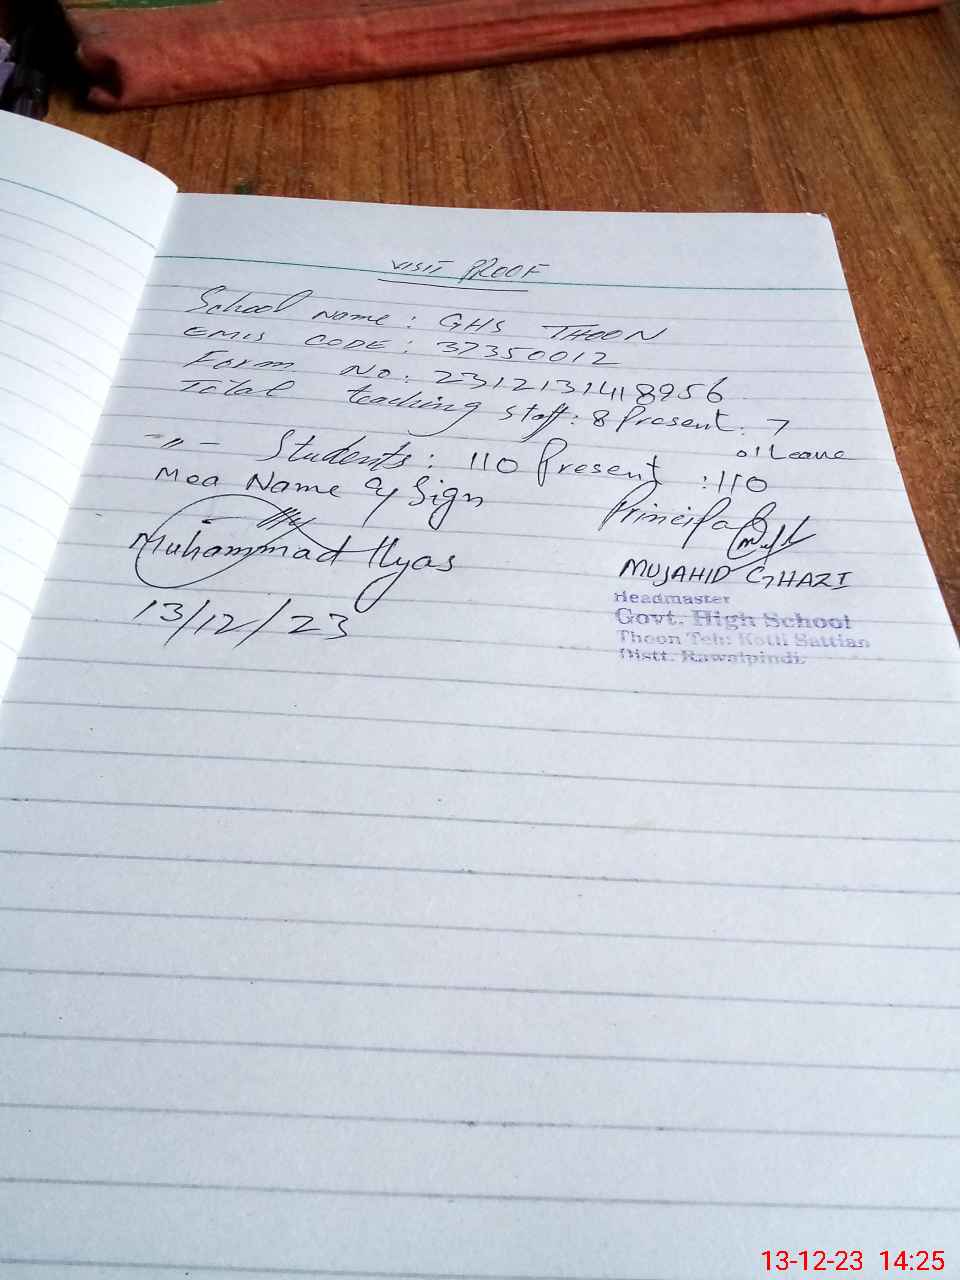 VISIT PROOF
School Name : GHS THOON
EMIS CODE : 37350012
Form No : 2312131418956
Total teaching staff : 8 Present : 7
01 Leave
-"- Students : 110 Present : 110
Mea Name & Sign
Principal
Muhammad Ilyas
MUJAHID GHAZI
13/12/23
Headmaster
Govt. High School
Thoon Teh: Kotli Sattian
Distt. Rawalpindi.
13-12-23 14:25